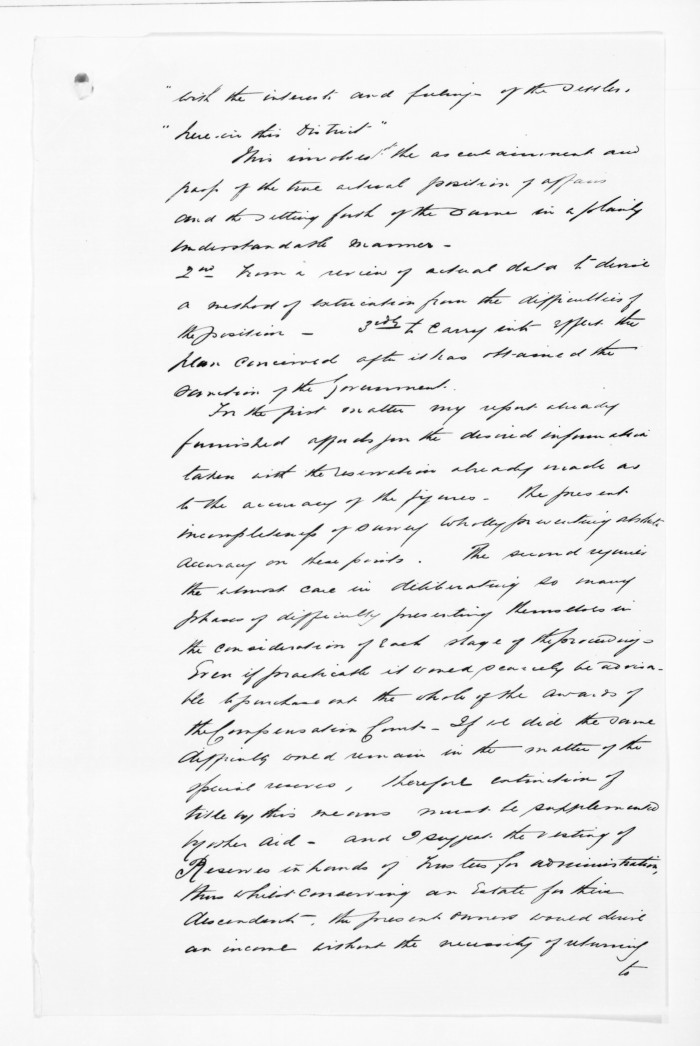 "with the interests and feelings of the settlers.
"here-in this District"
This involves 1st the ascertainment and
proof of the true actual position of affairs
and the setting forth of the same in a plainly
understandable manner -
2nd From a review of actual data to devise
a method of extrication from the difficulties of
the position - 3rdly to carry into effect the
plan conceived after it has obtained the
sanction of the Government.
In the first matter my report already
furnished affords you the desired information
taken with the reservation already made as
to the accuracy of the figures - The present
incompleteness of survey wholly preventing absolute
accuracy on these points. The second requires
the utmost care in deliberating so many
phases of difficulty presenting themselves in
the consideration of each stage of the proceedings
Even if practicable it would scarcely be advisa-
ble to purchase out the whole of the awards of
the Compensation Court - If we did the same
difficulty would remain in the matter of the
special reserves, therefore extinction of
title by this means must be supplemented
by other aid - and I suggest the vesting of
Reserves in hands of Trustees for administration,
thus whilst conserving an Estate for their
descendants, the present owners would derive
an income without the necessity of returning
to